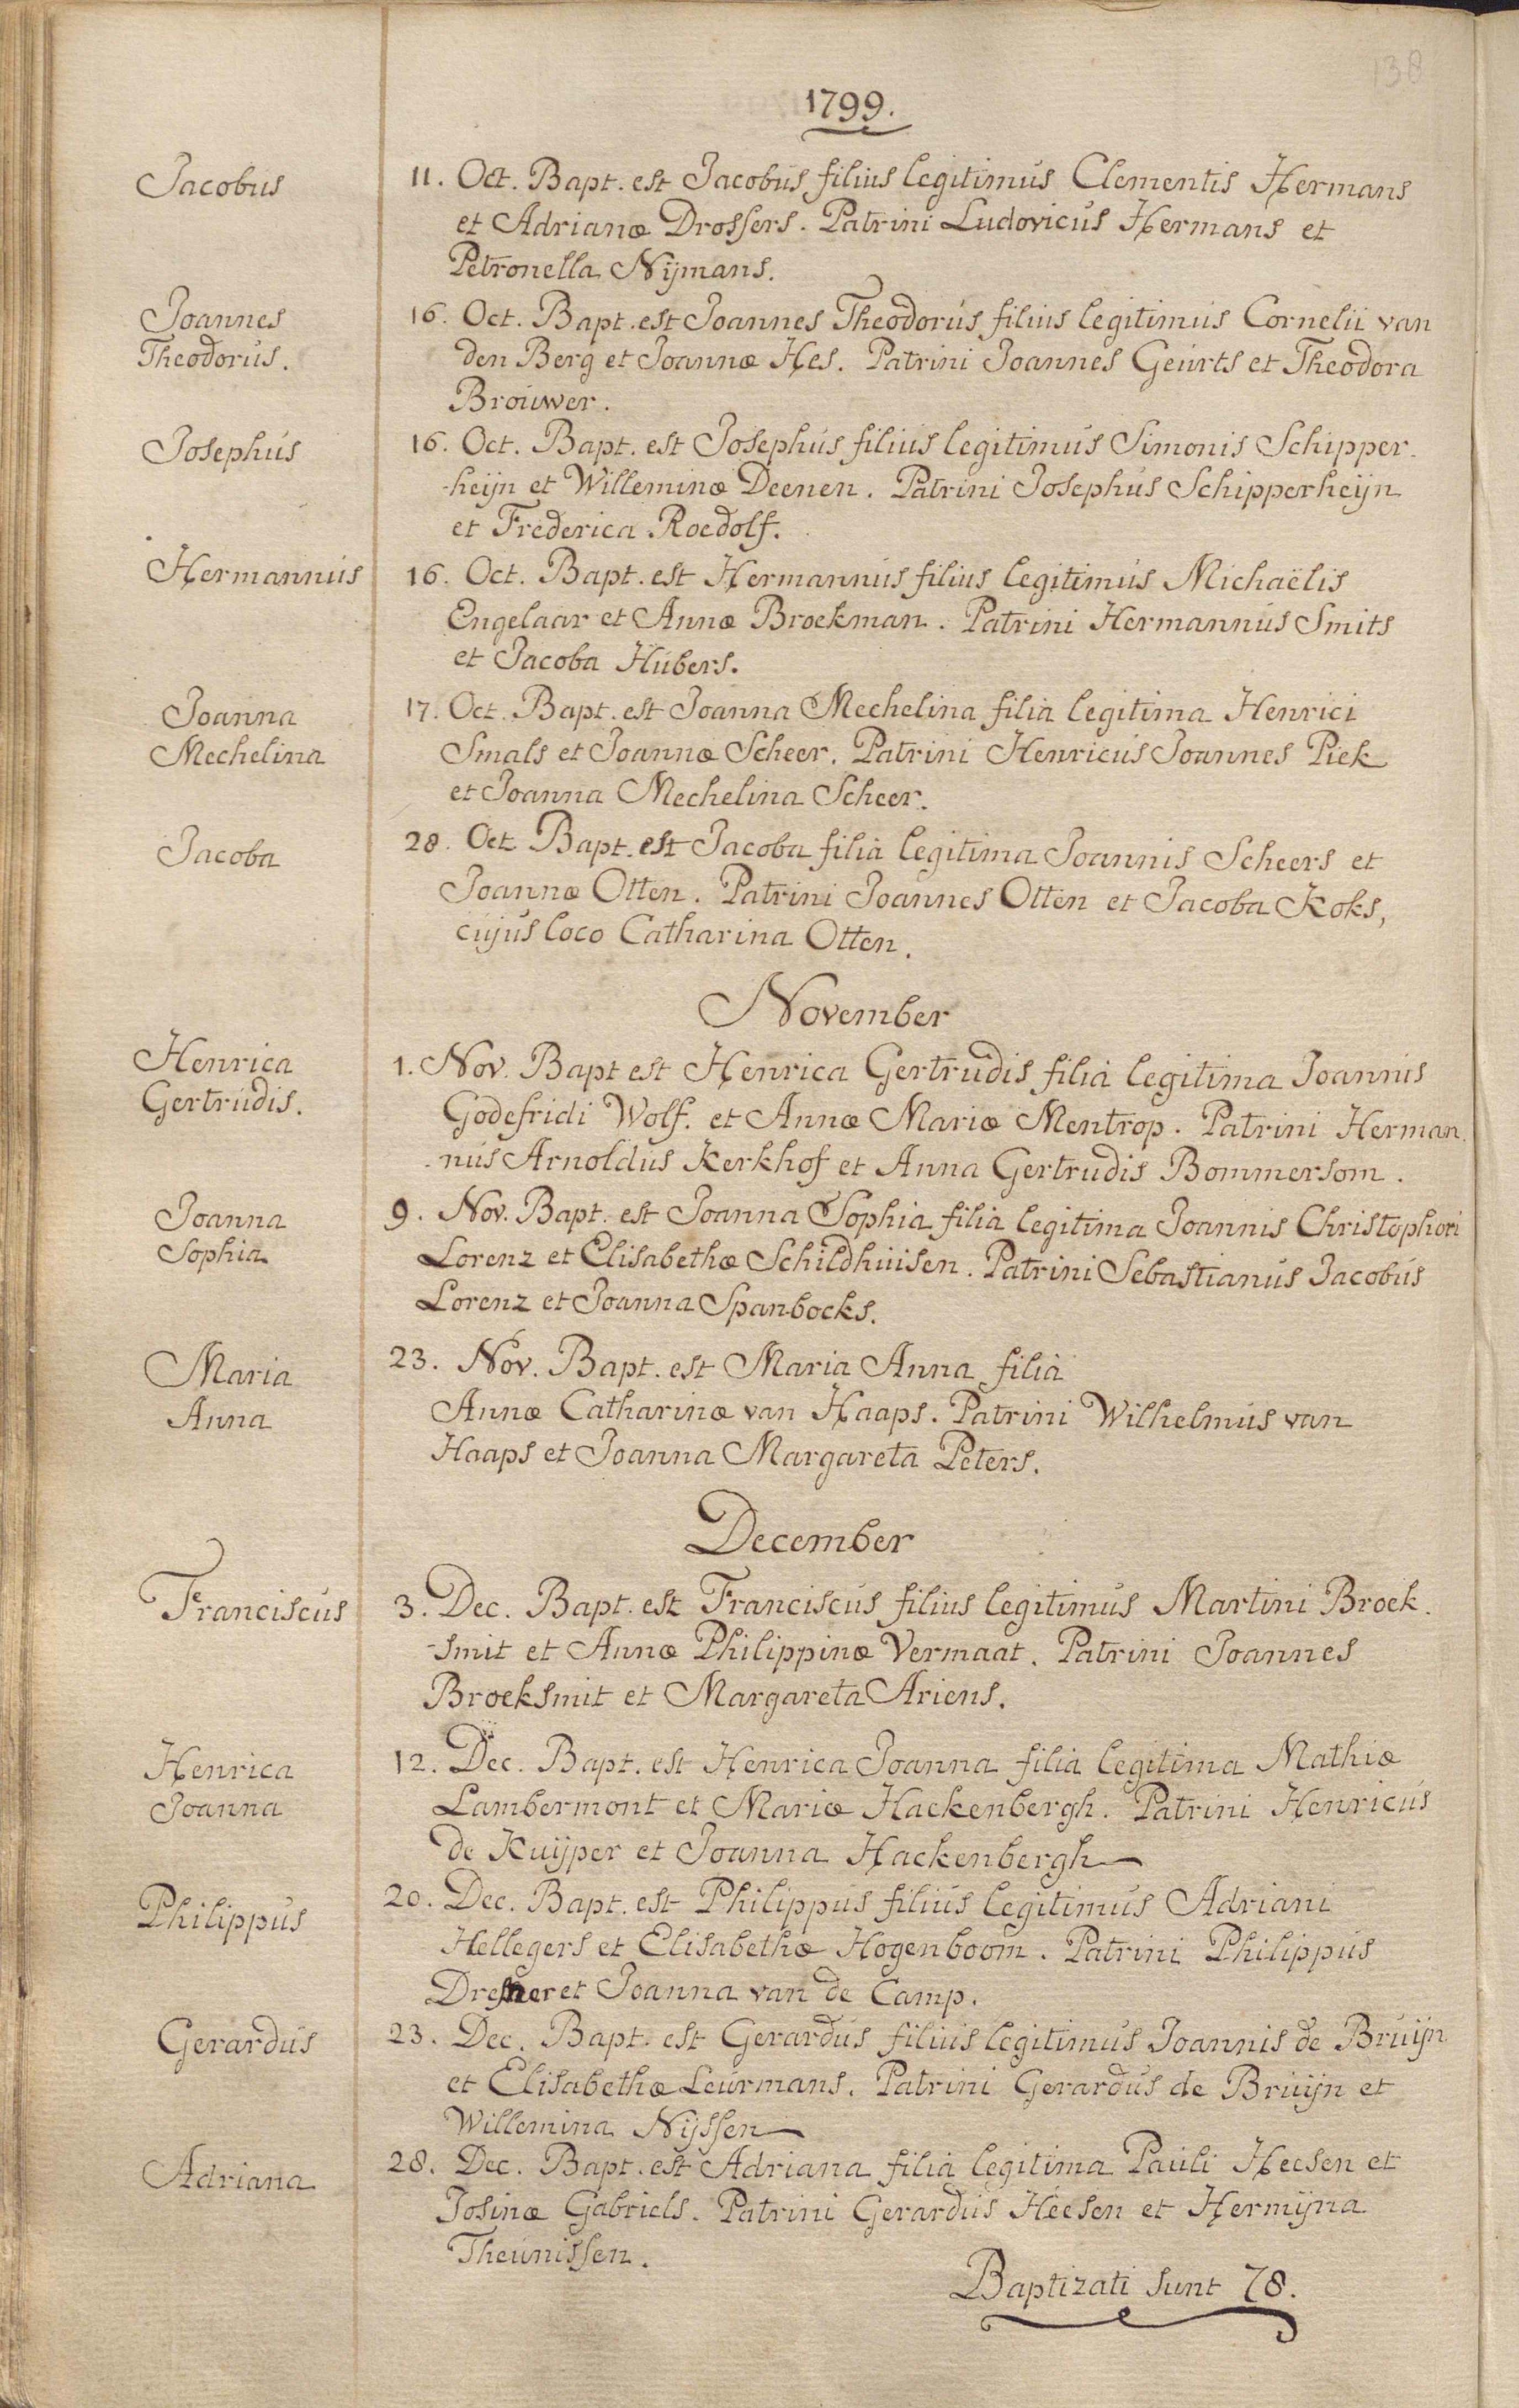 138
1799.
Jacobus
11. Oct. Bapt. est Jacobus filius legitimus Clementis Hermans
et Adrianæ Drossers. Patrini Ludovicus Hermans et
Petronella Nijmans.
Joannes
Theodorus.
16. Oct. Bapt. est Joannes Theodorus filius legitimus Cornelii van
den Berg et Joannæ Hes. Patrini Joannes Geurts et Theodora
Brouwer.
Josephus
16. Oct. Bapt. est Josephus filius legitimus Simonis Schipper-
-heijn et Willeminæ Deenen. Patrini Josephus Schipperheijn
et Frederica Roedolf.
Hermannus
16. Oct. Bapt. est Hermannus filius legitimus Michaëlis
Engelaar et Annæ Broekman. Patrini Hermannus Smits
et Jacoba Hubers.
Joanna
Mechelina
17. Oct. Bapt. est Joanna Mechelina filia legitima Henrici
Smals et Joannæ Scheer. Patrini Henricus Joannes Piek
et Joanna Mechelina Scheer.
Jacoba
28. Oct Bapt. est Jacoba filia legitima Joannis Scheers et
Joannæ Otten. Patrini Joannes Otten et Jacoba Koks,
cujus loco Catharina Otten.
November
Henrica
Gertrudis.
1. Nov. Bapt est Henrica Gertrudis filia legitima Joannis
Godefridi Wolf. et Annæ Mariæ Mentrop. Patrini Herman-
-nus Arnoldus Kerkhof et Anna Gertrudis Bommersom.
Joanna
Sophia
9. Nov. Bapt. est Joanna Sophia filia legitima Joannis Christophori
Lorenz et Elisabethæ Schildhuisen. Patrini Sebastianus Jacobus
Lorenz et Joanna Spanbocks.
Maria
Anna
23. Nov. Bapt. est Maria Anna filia
Annæ Catharinæ van Haaps. Patrini Wilhelmus van
Haaps et Joanna Margareta Peters.
December
Franciscus
3. Dec. Bapt. est Franciscus filius legitimus Martini Broek-
-smit et Annæ Philippinæ Vermaat. Patrini Joannes
Broeksmit et Margareta Ariens.
Henrica
Joanna
12. Dec. Bapt. est Henrica Joanna filia legitima Mathiæ
Lambermont et Mariæ Hackenbergh. Patrini Henricus
de Kuijper et Joanna Hackenbergh
Philippus
20. Dec. Bapt. est Philippus filius legitimus Adriani
Hellegers et Elisabethæ Hogenboom. Patrini Philippus
et Joanna van de Camp.
Gerardus
23. Dec. Bapt. est Gerardus filius legitimus Joannis de Bruijn
et Elisabethæ Leurmans. Patrini Gerardus de Bruijn et
Willemina Nijssen
Adriana
28. Dec. Bapt. est Adriana filia legitima Pauli Heesen et
Josinæ Gabriels. Patrini Gerardus Heesen et Hermijna
Theunissen.
Baptizati sunt 78.